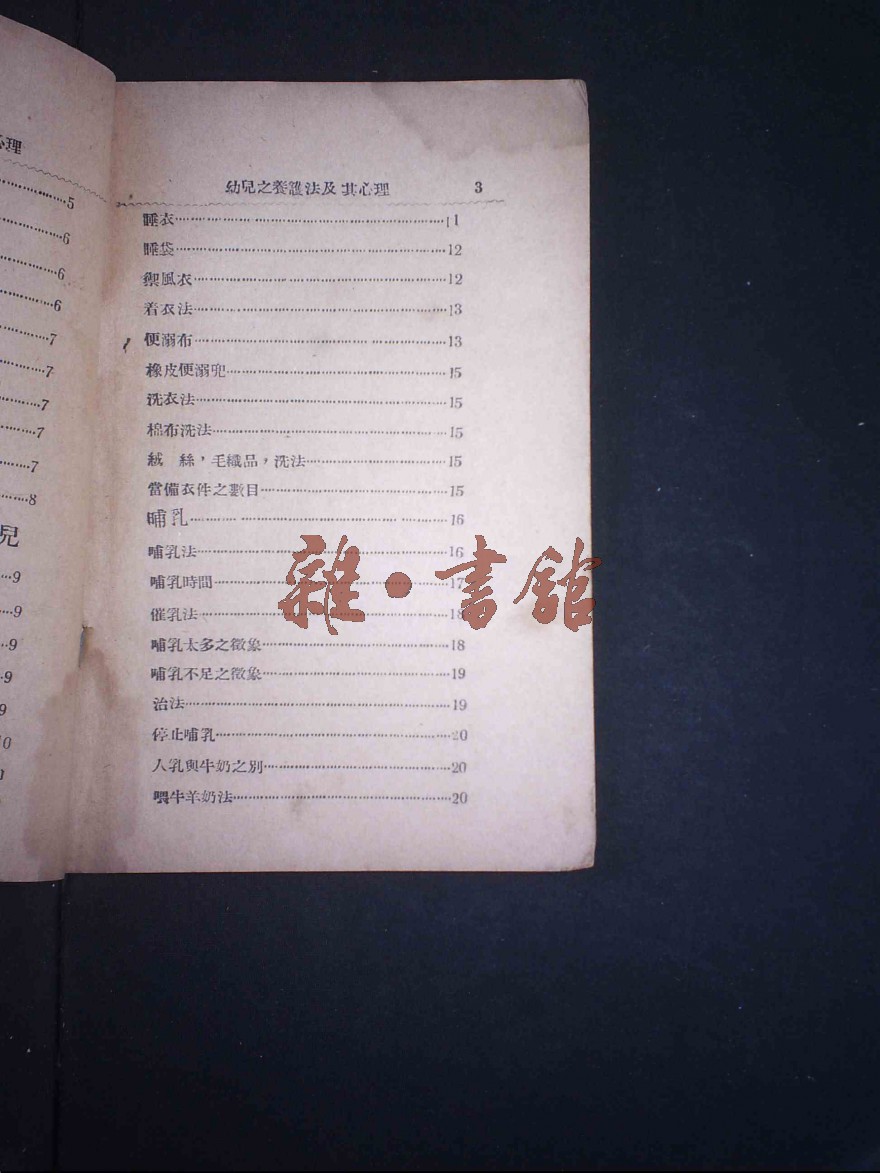 心理
5
6
6
6
7
7
7
7
7
8
兒
9
9
9
9
9
10
幼兒之養護法及其心理 3
睡衣 11
睡袋 12
禦風衣 12
着衣法 13
便溺布 13
橡皮便溺兜 15
洗衣法 15
棉布洗法 15
絨　絲，毛織品，洗法 15
當備衣件之數目 15
哺乳 16
哺乳法 16
哺乳時間 17
催乳法 18
哺乳太多之徵象 18
哺乳不足之徵象 19
治法 19
停止哺乳 20
人乳與牛奶之別 20
喂牛羊奶法 20
雜·書館